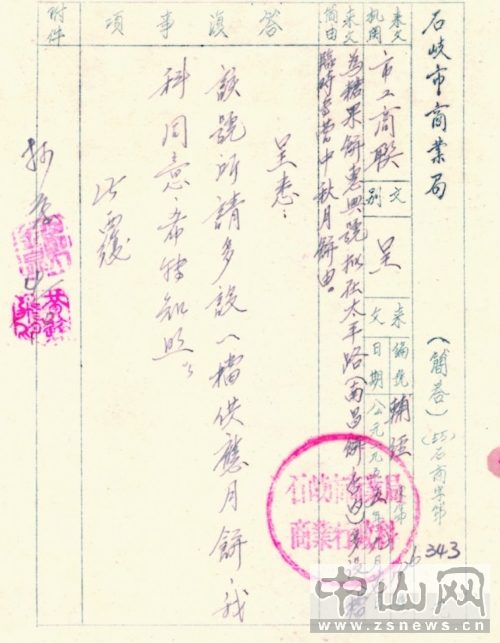 石岐市商業局
(簡答)
(55)石商業字第
343
來文机關
市工商联
文別
呈
來文
編號
輔
字第
日期
公元一九五五年九月
來文簡由
為糖果餅惠興號拟在太平路(南昌餅店边)多設一檔
臨時专营中秋月餅由。
答復事項
呈悉：
該號所請多設一檔供應月餅，我
科同意，希轉知照。
此覆
附件
石岐市商業局
商業行政科
中山网
www.zsnews.cn